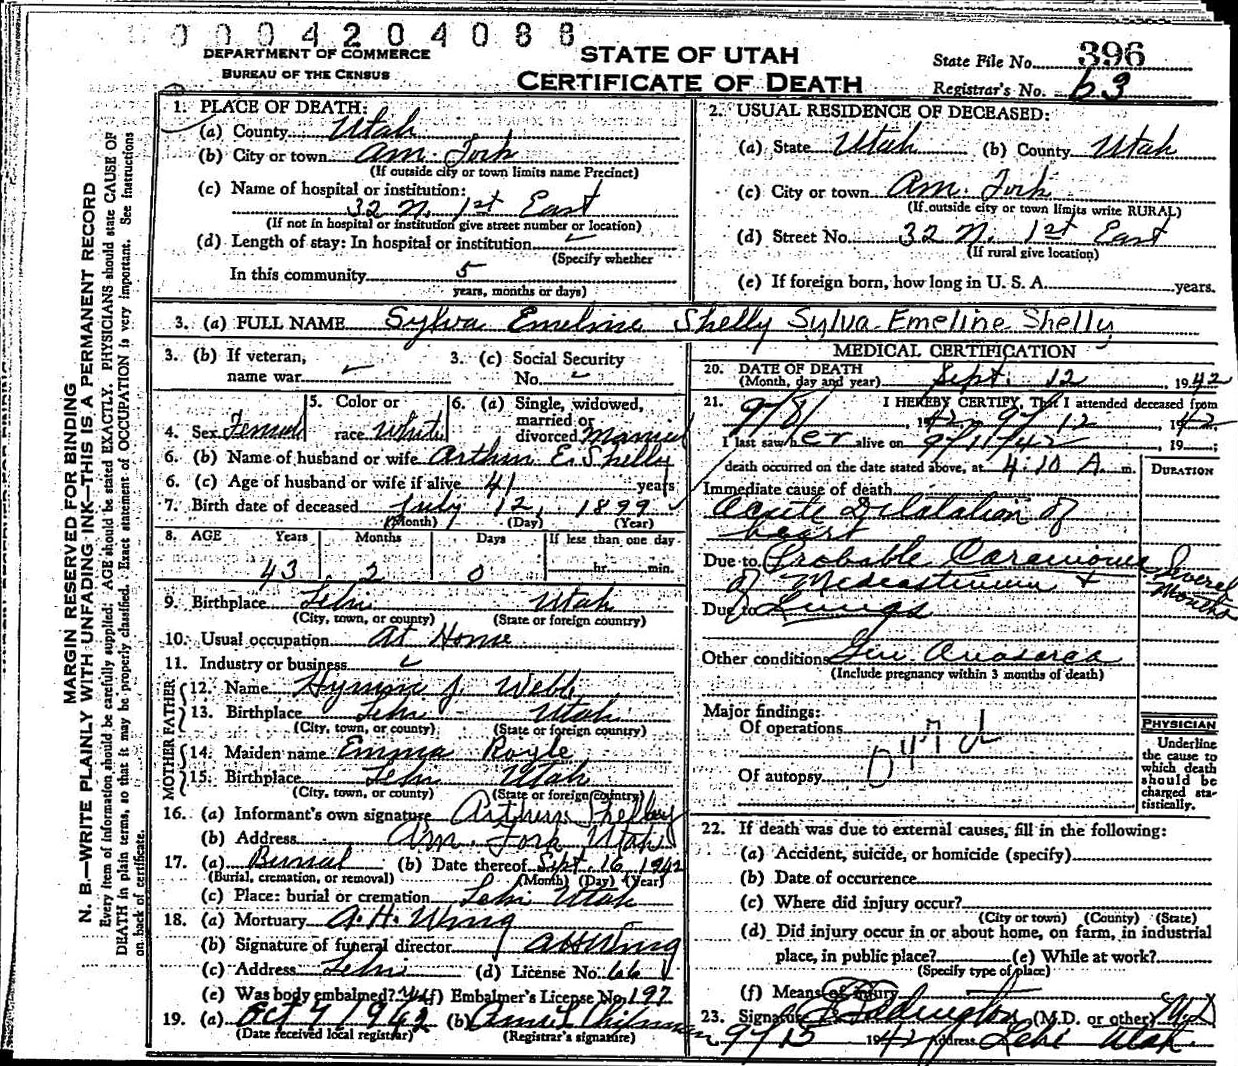 0004204088
DEPARTMENT OF COMMERCE
BUREAU OF THE CENSUS
STATE OF UTAH
CERTIFICATE OF DEATH
State File No. 396
Registrar's No. 63
MARGIN RESERVED FOR BINDING
N. B.—WRITE PLAINLY WITH UNFADING INK—THIS IS A PERMANENT RECORD
Every item of information should be carefully supplied. AGE should be stated EXACTLY. PHYSICIANS should state CAUSE OF
DEATH in plain terms, so that it may be properly classified. Exact statement of OCCUPATION is very important. See instructions
on back of certificate.
1. PLACE OF DEATH:
(a) County Utah
(b) City or town Am. Fork
(If outside city or town limits name Precinct)
(c) Name of hospital or institution:
32 N. 1st East
(If not in hospital or institution give street number or location)
(d) Length of stay: In hospital or institution
(Specify whether
In this community 5
years, months or days)
2. USUAL RESIDENCE OF DECEASED:
(a) State Utah (b) County Utah
(c) City or town Am. Fork
(If outside city or town limits write RURAL)
(d) Street No. 32 N. 1st East
(If rural give location)
(e) If foreign born, how long in U. S. A. years.
3. (a) FULL NAME Sylva Emeline Shelly Sylva Emeline Shelly
3. (b) If veteran,
name war
3. (c) Social Security
No.
4. Sex Female
5. Color or
race White
6. (a) Single, widowed,
married or
divorced Married
6. (b) Name of husband or wife Arthur E. Shelly
6. (c) Age of husband or wife if alive 41 years
7. Birth date of deceased July 12, 1899
(Month) (Day) (Year)
8. AGE Years Months Days If less than one day
43 2 0 hr. min.
9. Birthplace Lehi Utah
(City, town, or county) (State or foreign country)
10. Usual occupation At Home
11. Industry or business
FATHER
12. Name J. Webb
13. Birthplace Lehi Utah
(City, town, or county) (State or foreign country)
MOTHER
14. Maiden name Emma Royle
15. Birthplace Lehi Utah
(City, town, or county) (State or foreign country)
16. (a) Informant's own signature Arthur Shelley
(b) Address Am. Fork Utah
17. (a) Burial (b) Date thereof Sept. 16 1942
(Burial, cremation, or removal) (Month) (Day) (Year)
(c) Place: burial or cremation Lehi Utah
18. (a) Mortuary A. H. Wing
(b) Signature of funeral director A H Wing
(c) Address Lehi (d) License No. 66
(e) Was body embalmed? (f) Embalmer's License No. 197
19. (a) Oct 7 1942 (b)
(Date received local registrar) (Registrar's signature)
MEDICAL CERTIFICATION
20. DATE OF DEATH
(Month, day and year) Sept. 12, 1942
21. I HEREBY CERTIFY, That I attended deceased from
9/8/, 1942 9/12, 1942
I last saw her alive on 9/11/42, 19
death occurred on the date stated above, at 4:10 A. m.
DURATION
Immediate cause of death
Acute Dilatation of
heart
Due to Probable
of Mediastinum +
Several
Months
Due to Lungs
Other conditions Gen Anasarca
(Include pregnancy within 3 months of death)
Major findings:
Of operations
Of autopsy
PHYSICIAN
Underline
the cause to
which death
should be
charged sta-
tistically.
22. If death was due to external causes, fill in the following:
(a) Accident, suicide, or homicide (specify)
(b) Date of occurrence
(c) Where did injury occur?
(City or town) (County) (State)
(d) Did injury occur in or about home, on farm, in industrial
place, in public place? (e) While at work?
(Specify type of place)
(f) Means of injury
23. Signature Eddington (M.D. or other) MD
9/15 1942 Address Lehi Utah